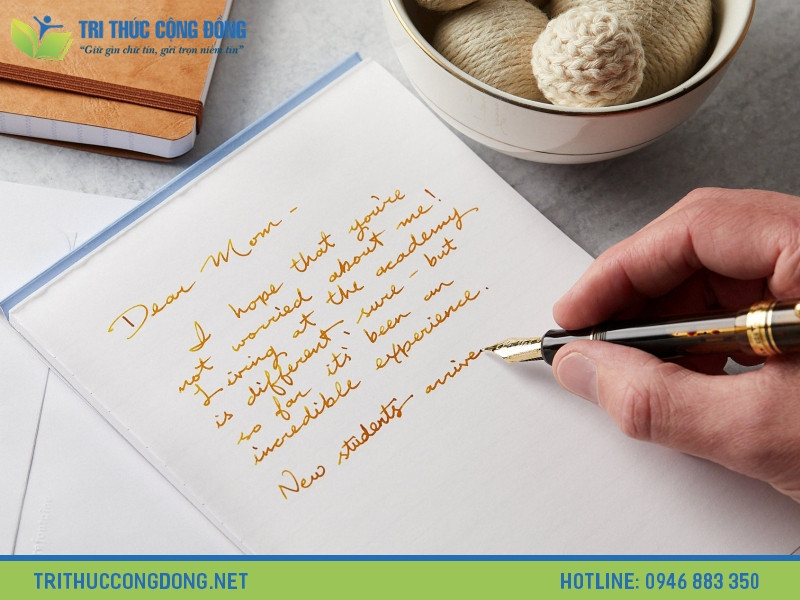 TRI THỨC CỘNG ĐỒNG
"Giữ gìn chữ tín, gửi trọn niềm tin"
Dear Mom -
I hope that you're
not worried about me!
Living at the academy
is different sure - but
so far it's been an
incredible experience.
New students arrive
TRITHUCCONGDONG.NET
HOTLINE: 0946 883 350